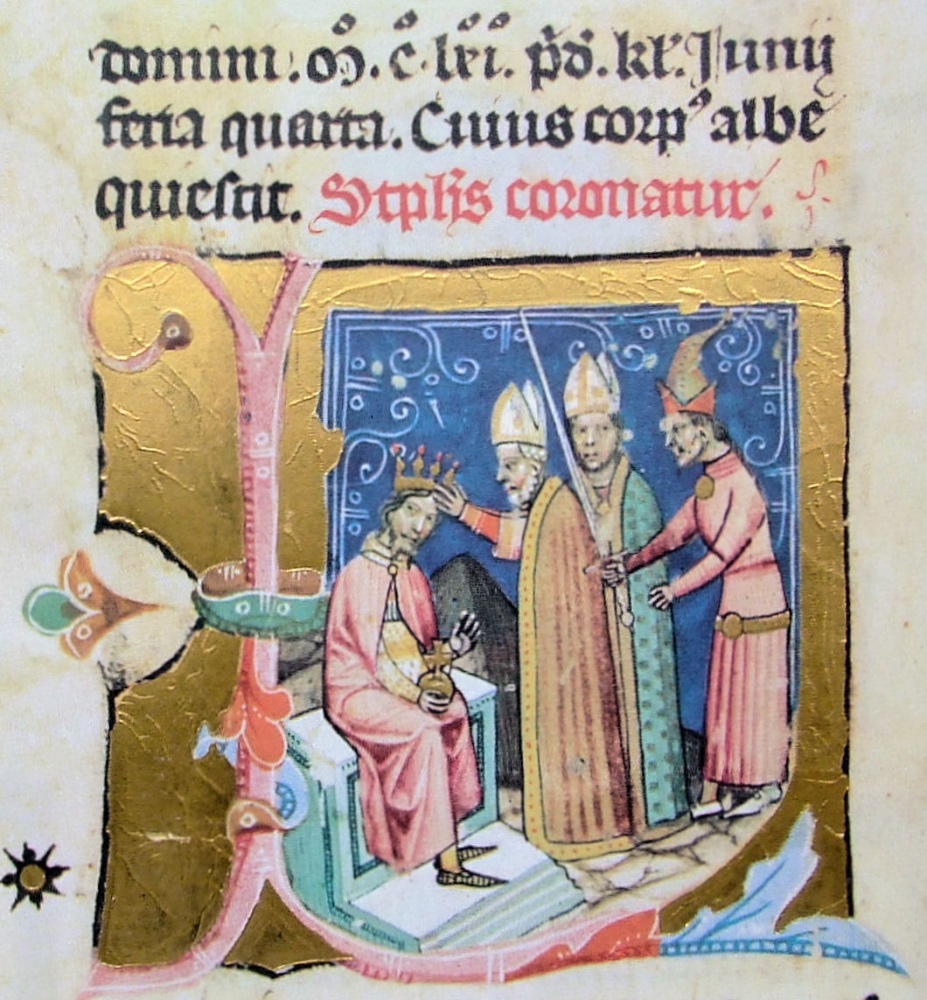 domini. M. c. lxii. pd. kl'. Junij
feria quarta. Cuius corp9 albe
quiescit. Stephs coronatur.